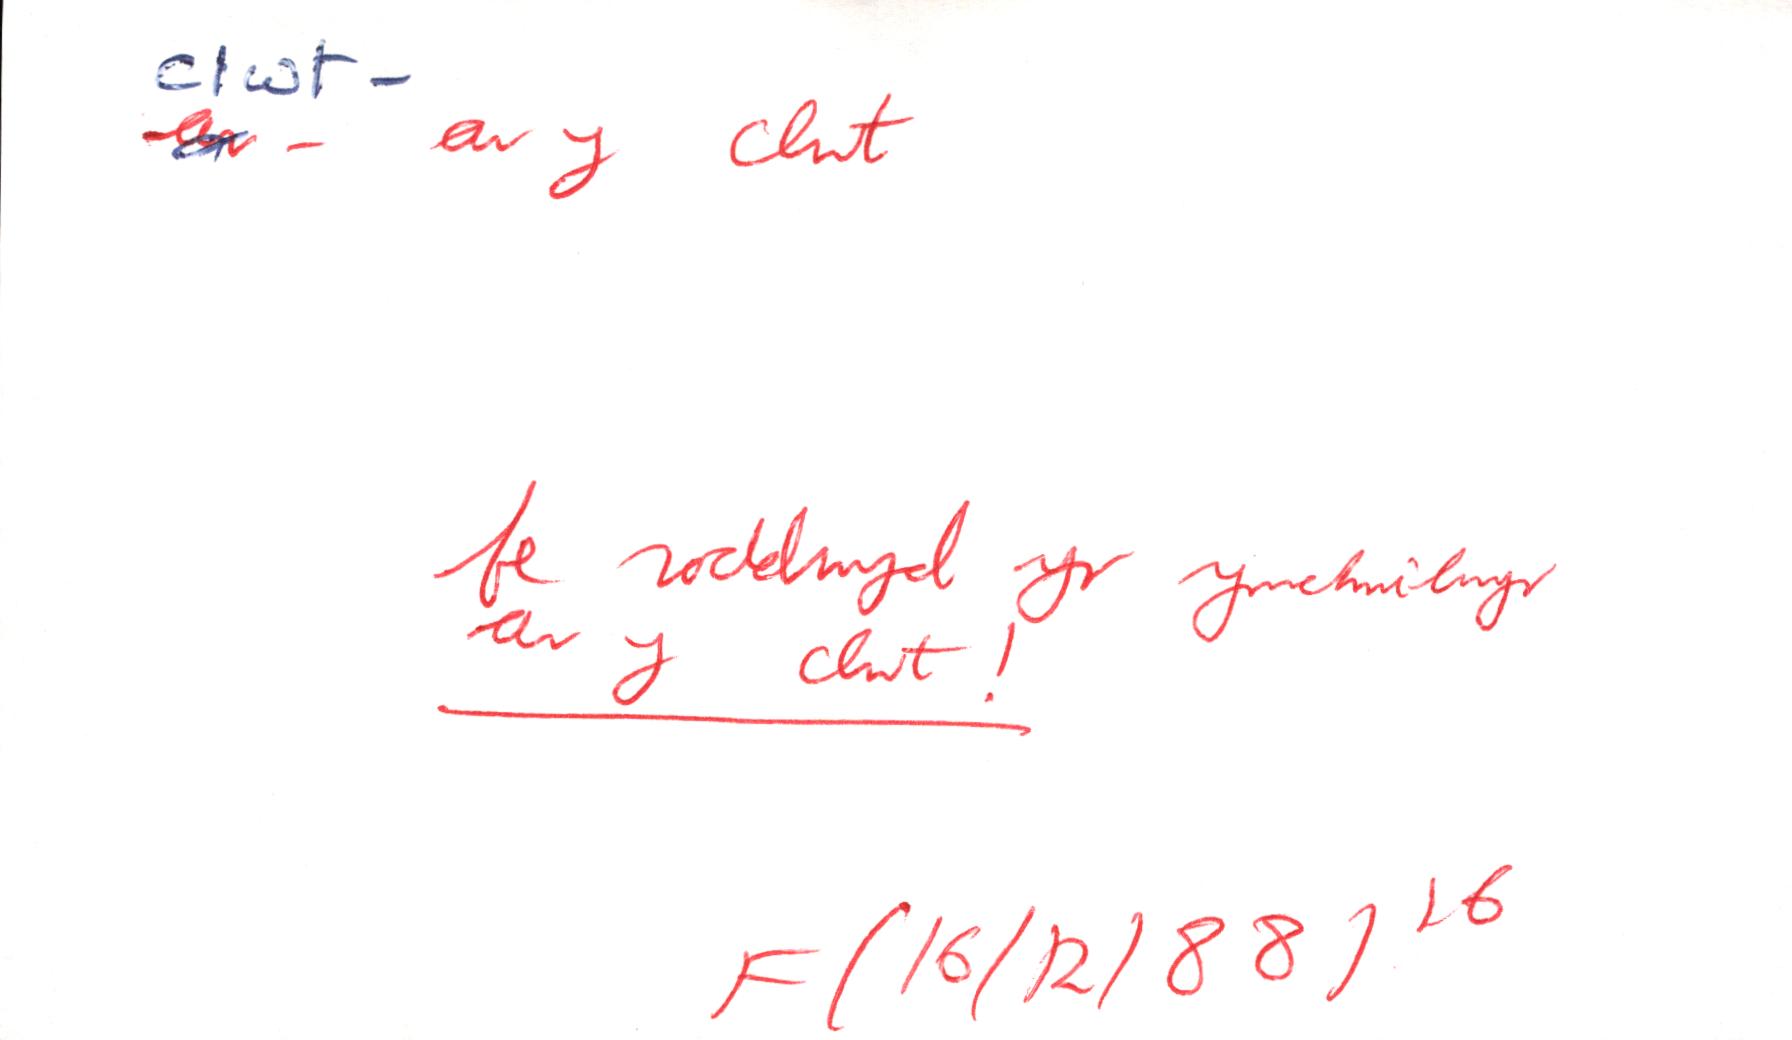 clwt -
ar - ar y clwt
fe roddwyd yr ymchwilwyr
ar y clwt!
F(16/12/88)16